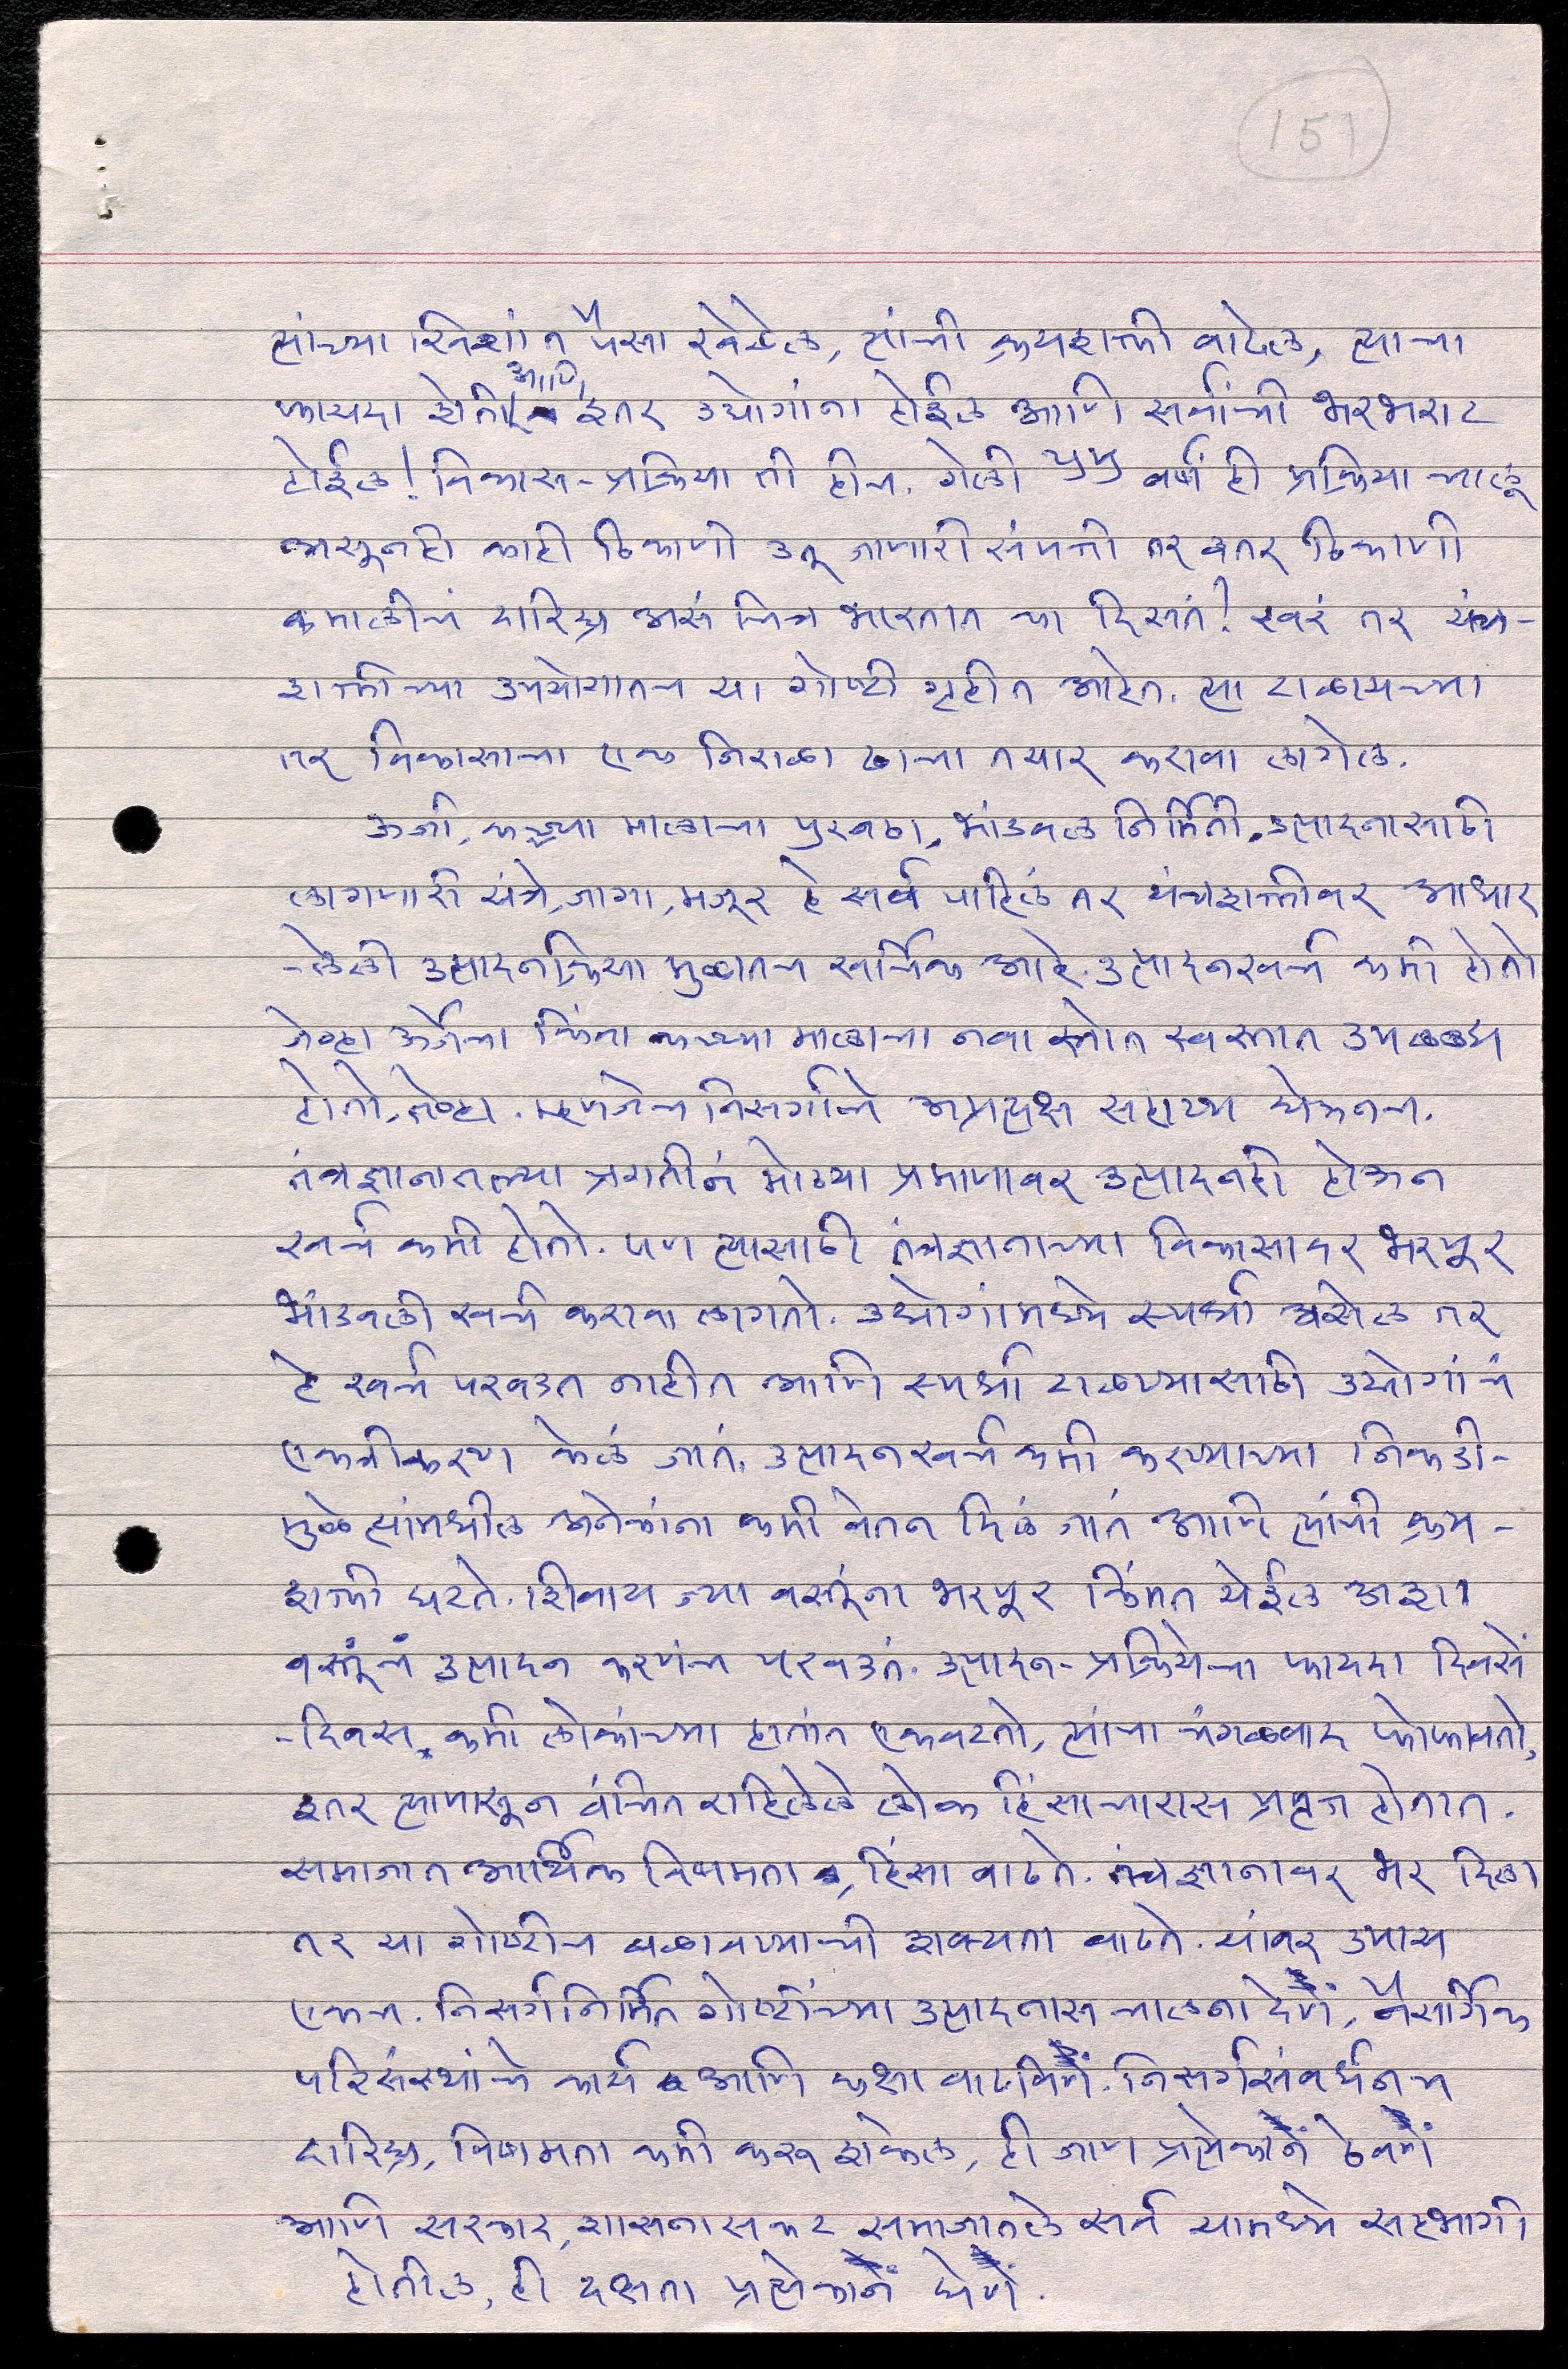 151
त्यांच्या खिशांत पैसा खेळेल, त्यांची क्रयशक्ती वाढेल, त्याचा
फायदा शेती आणि इतर उद्योगांना होईल आणि सर्वांची भरभराट
होईल! विकास-प्रक्रिया ती हीच. गेली ५५ वर्षं ही प्रक्रिया चालू
असूनही काही ठिकाणी उतू जाणारी संपत्ती तर इतर ठिकाणी
कमालीचं दारिद्र्य असं चित्र भारतात का दिसतं? खरं तर यंत्र-
शक्तीच्या उपयोगातच या गोष्टी गृहीत आहेत. त्या टाळायच्या
तर विकासाचा एक निराळा ढाचा तयार करावा लागेल.
ऊर्जा, कच्च्या मालाचा पुरवठा, भांडवल निर्मिती, उत्पादनासाठी
लागणारी यंत्रे, जागा, मजूर हे सर्व पाहिलं तर यंत्रशक्तीवर आधार
-लेली उत्पादनक्रिया मुळातच खर्चिक आहे. उत्पादनखर्च कमी होतो
जेव्हा ऊर्जेचा किंवा कच्च्या मालाचा नवा स्त्रोत स्वस्तात उपलब्ध
होतो, तेव्हा. म्हणजेच निसर्गाचे अप्रत्यक्ष सहाय्य घेऊनच.
तंत्रज्ञानातल्या प्रगतीनं मोठ्या प्रमाणावर उत्पादनही होऊन
खर्च कमी होतो. पण त्यासाठी तंत्रज्ञानाच्या विकासावर भरपूर
भांडवली खर्च करावा लागतो. उद्योगांमध्ये स्पर्धा असेल तर
हे खर्च परवडत नाहीत आणि स्पर्धा टाळण्यासाठी उद्योगांचं
एकत्रीकरण केलं जातं. उत्पादनखर्च कमी करण्याच्या निकडी-
मुळे त्यांमधील अनेकांना कमी वेतन दिलं जातं आणि त्यांची क्रय-
शक्ती घटते. शिवाय ज्या वस्तूंना भरपूर किंमत येईल अशा
वस्तूंचं उत्पादन करणंच परवडतं. उत्पादन-प्रक्रियेचा फायदा दिवसें
-दिवस कमी लोकांच्या हातांत एकवटतो, त्यांचा चंगळवाद फोफावतो,
इतर त्यापासून वंचित राहिलेले लोक हिंसाचारास प्रवृत्त होतात.
समाजात आर्थिक विषमता, हिंसा वाढते. तंत्रज्ञानावर भर दिला
तर या गोष्टीच बळावण्याची शक्यता वाढते. यांवर उपाय
एकच. निसर्गनिर्मित गोष्टींच्या उत्पादनास चालना देणं, नैसर्गिक
परिसंस्थांचे कार्य आणि कक्षा वाढविणं. निसर्गसंवर्धनच
दारिद्र्य, विषमता कमी करू शकेल, ही जाण प्रत्येकानं ठेवणं
आणि सरकार, शासनासकट समाजातले सर्व यामध्ये सहभागी
होतील, ही दक्षता प्रत्येकानं घेणं.